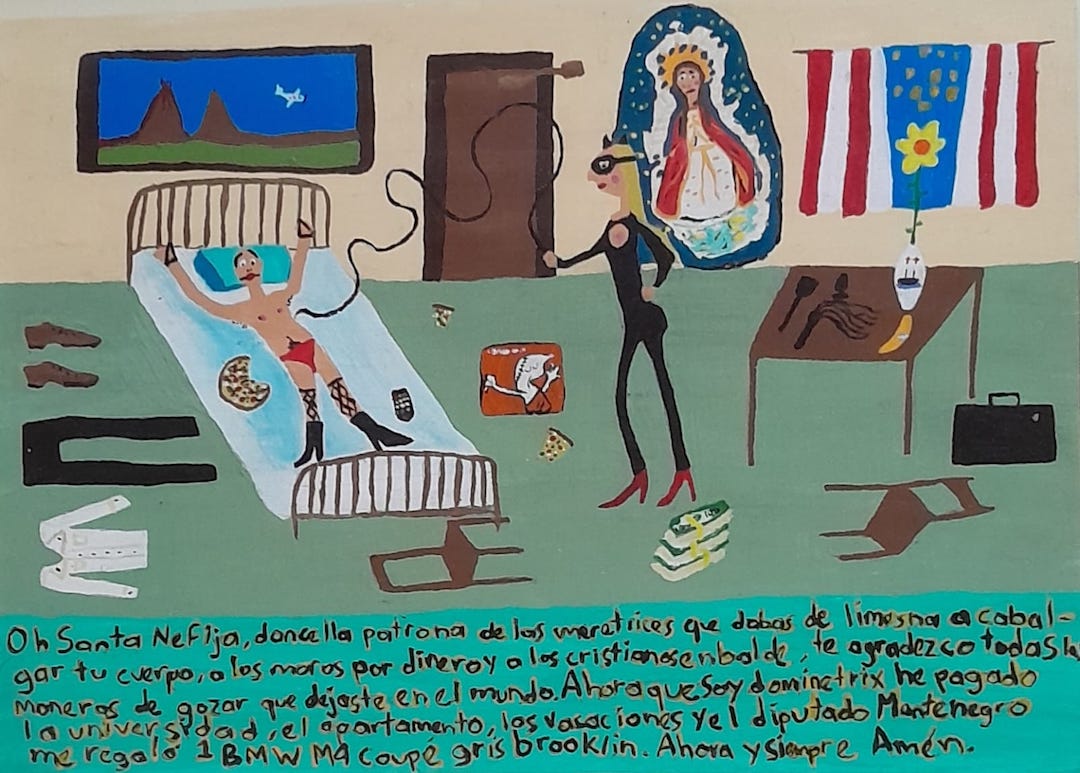 Oh Santa Nefija, doncella patrona de las meretrices que dabas de limosna a cabal-
gar tu cuerpo, a los moros por dinero y a los cristianos en balde, te agradezco todas la
maneras de gozar que dejaste en el mundo. Ahora que soy dominetrix he pagado
la universidad, el apartamento, las vacaciones y el diputado Montenegro
me regaló 1 BMW M4 coupé gris brooklin. Ahora y siempre Amén.